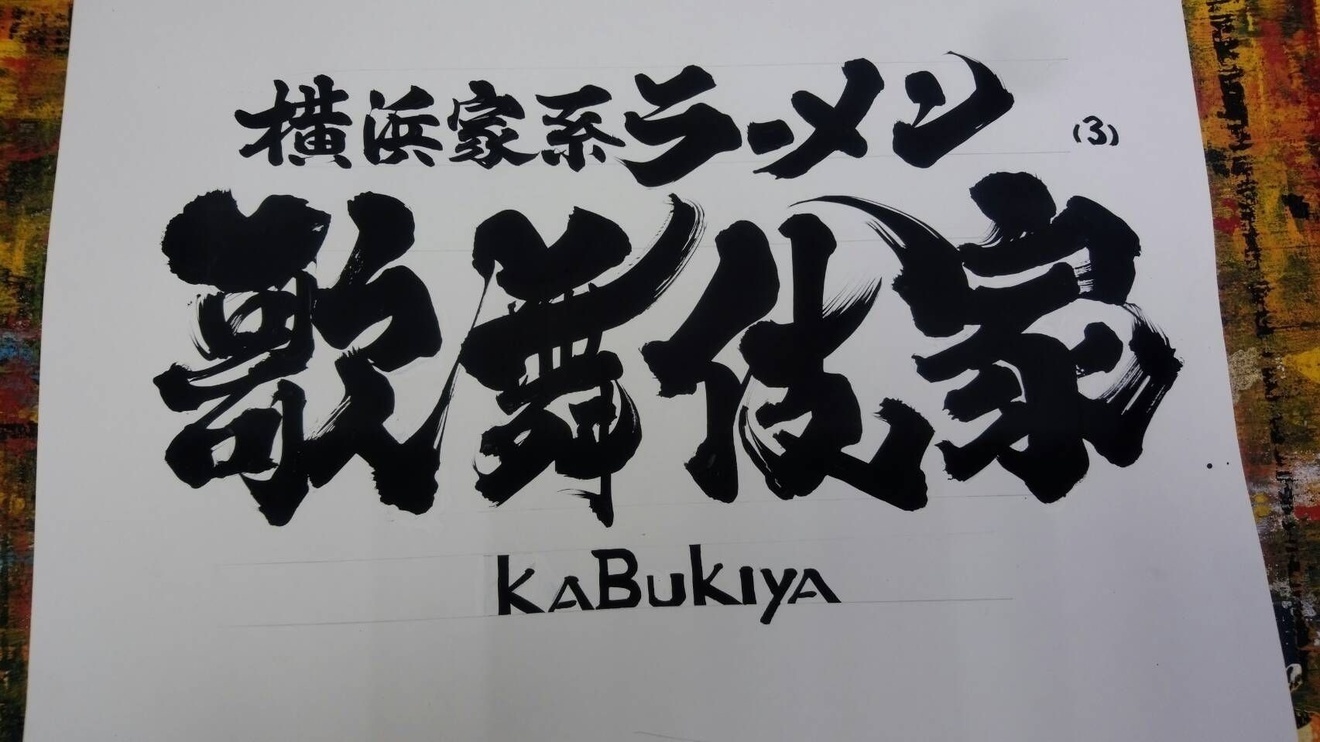 横浜家系ラーメン (3)
歌舞伎家
KABUKIYA